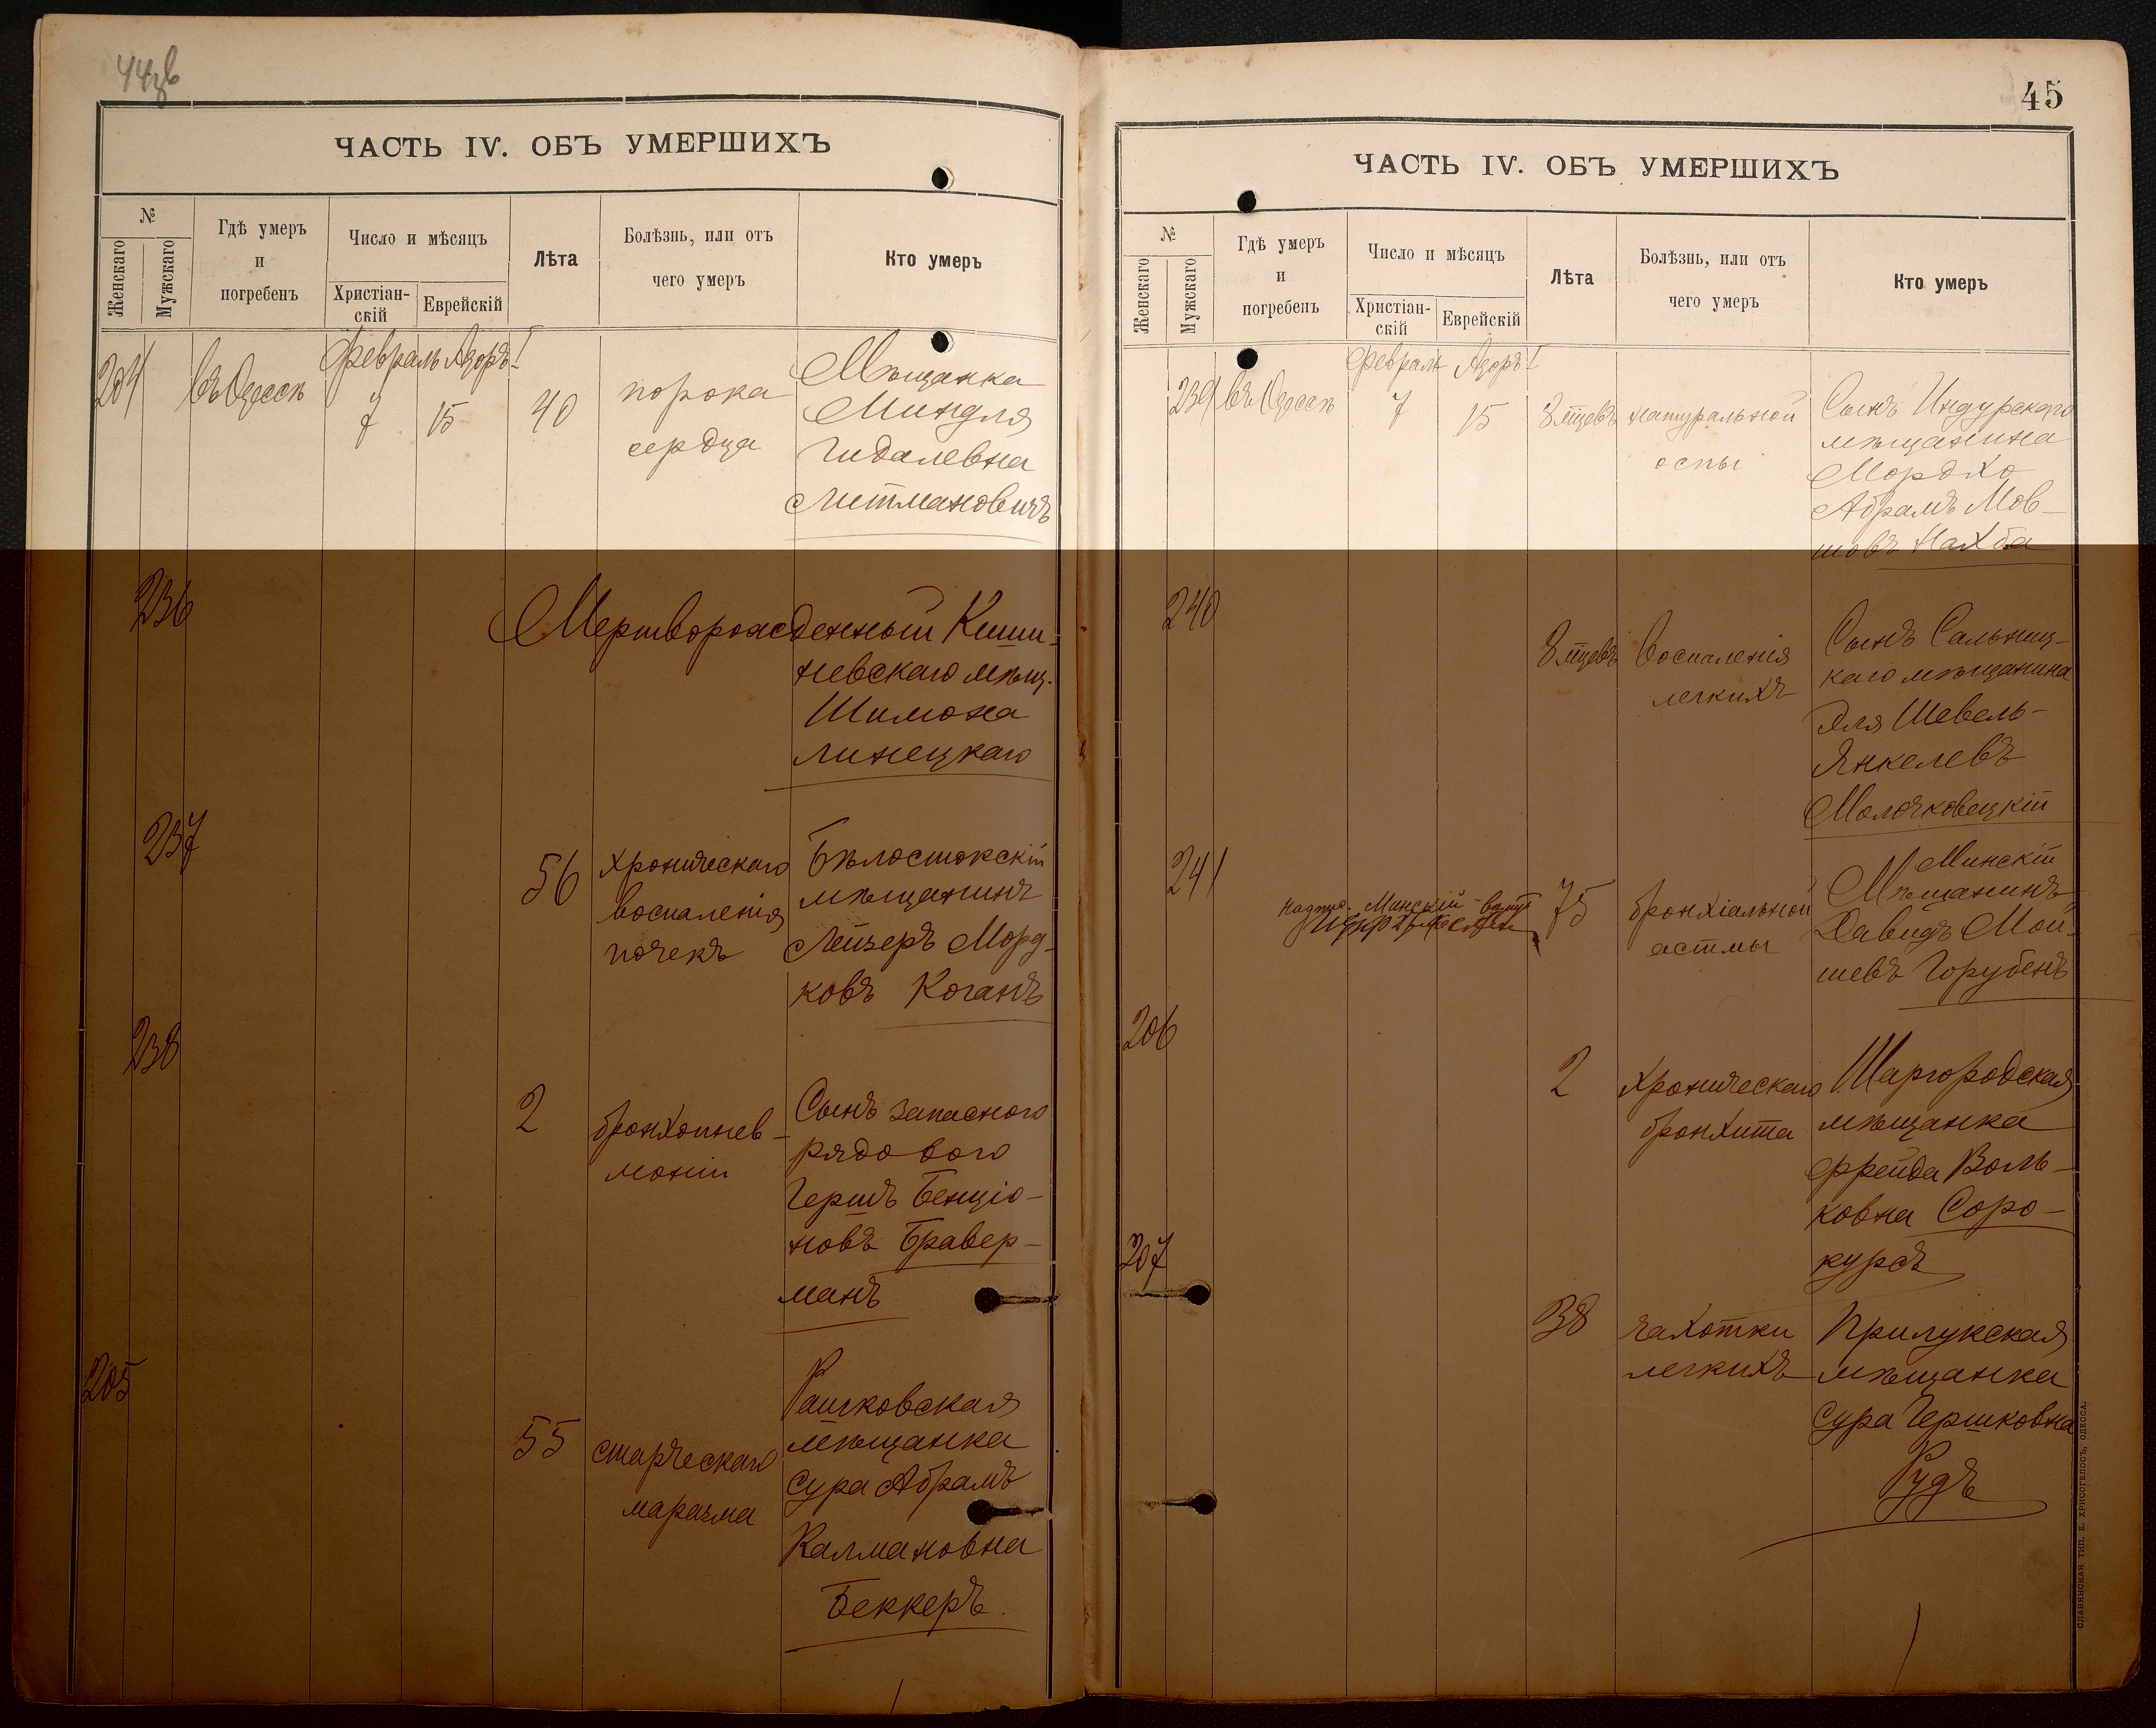 44об
ЧАСТЬ IV. ОБЪ УМЕРШИХЪ
№
Женскаго
Мужскаго
Гдѣ умеръ
и
погребенъ
Число и мѣсяцъ
Христіан-
скій
Еврейскій
Лѣта
Болѣзнь, или отъ
чего умеръ
Кто умеръ
Февраль Адоръ I
204 въ Одессѣ 7 15 40
порока
сердца
Мѣщанка
Миндля
Гидалевна
Литмановичъ
236
Мертворожденный Киши-
невскаго мѣщ.
Шимона
Линецкаго
237
56
хроническаго
воспаленія
почекъ
Бѣлостокскій
мѣщанинъ
Лейзеръ Морд-
ковъ Коганъ
238
2
бронхопнев-
моніи
Сынъ запасного
рядового
Гершъ Бенціо-
новъ Бравер-
манъ
205
55
старческаго
маразма
Рашковская
мѣщанка
Сура Абрамъ
Калмановна
Беккеръ.
45
ЧАСТЬ IV. ОБЪ УМЕРШИХЪ
№
Женскаго
Мужскаго
Гдѣ умеръ
и
погребенъ
Число и мѣсяцъ
Христіан-
скій
Еврейскій
Лѣта
Болѣзнь, или отъ
чего умеръ
Кто умеръ
Февраль Адоръ I
239 въ Одессѣ 7 15 8 мцевъ
натуральной
оспы
Сынъ Индурскаго
мѣщанина
Мордхо
Абрамъ Мов-
шовъ Нахба
240
8 мцевъ
воспаленія
легкихъ
Сынъ Сальниц-
каго мѣщанина
Эля Шевель-
Янкелевъ
Молочковецкій
241
Минскій
75
бронхіальной
астмы
Минскій
Мѣщанинъ
Давидъ Мой-
шевъ Горубенъ
206
2
хроническаго
бронхита
Шаргородская
мѣщанка
Фрейда Воль-
ковна Соро-
куръ
207
38
чахотки
легкихъ
Прилукская
мѣщанка
Сура Гершковна
Рудъ
СЛАВЯНСКАЯ ТИП. Е. ХРИСОГЕЛОСЪ, ОДЕССА.